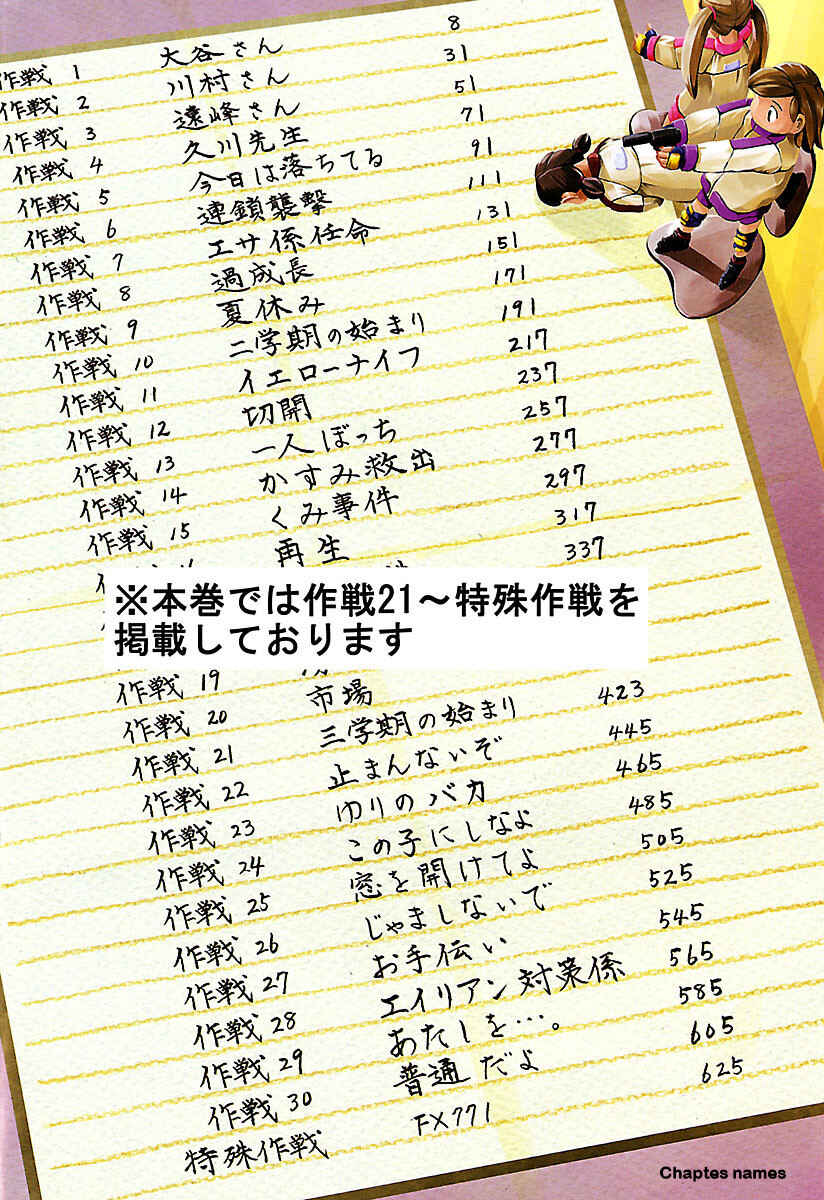 作戦 1 大谷さん 8
作戦 2 川村さん 31
作戦 3 遠峰さん 51
作戦 4 久川先生 71
作戦 5 今日は落ちてる 91
作戦 6 連鎖襲撃 111
作戦 7 エサ係任命 131
作戦 8 過成長 151
作戦 9 夏休み 171
作戦 10 二学期の始まり 191
作戦 11 イエローナイフ 217
作戦 12 切開 237
作戦 13 一人ぼっち 257
作戦 14 かすみ救出 277
作戦 15 くみ事件 297
再生 317
337
※本巻では作戦21～特殊作戦を
掲載しております
作戦 19
作戦 20 市場
作戦 21 三学期の始まり 423
作戦 22 止まんないぞ 445
作戦 23 ゆりのバカ 465
作戦 24 この子にしなよ 485
作戦 25 窓を開けてよ 505
作戦 26 じゃましないで 525
作戦 27 お手伝い 545
作戦 28 エイリアン対策係 565
作戦 29 あたしを…。 585
作戦 30 普通だよ 605
特殊作戦 FX771 625
Chaptes names